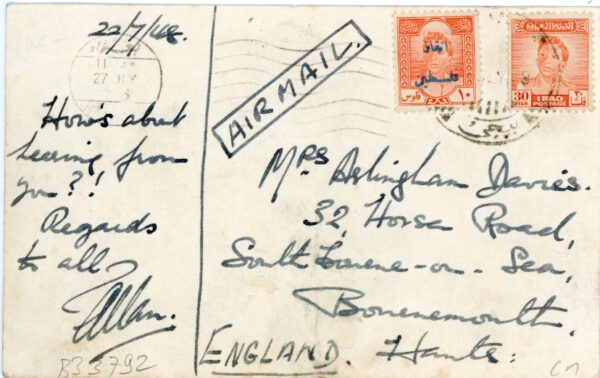 22/7/48.
How's about
hearing from
you?!
Regards
to all
Allan.
B33792
AIRMAIL.
انقاذ
فلسطين
فلوس ١٠
30
FILS
IRAQ
POSTAGE
Mrs Arlingham Davies.
32, Horsa Road,
Southbourne-on-Sea,
Bournemouth,
Hants:
ENGLAND.